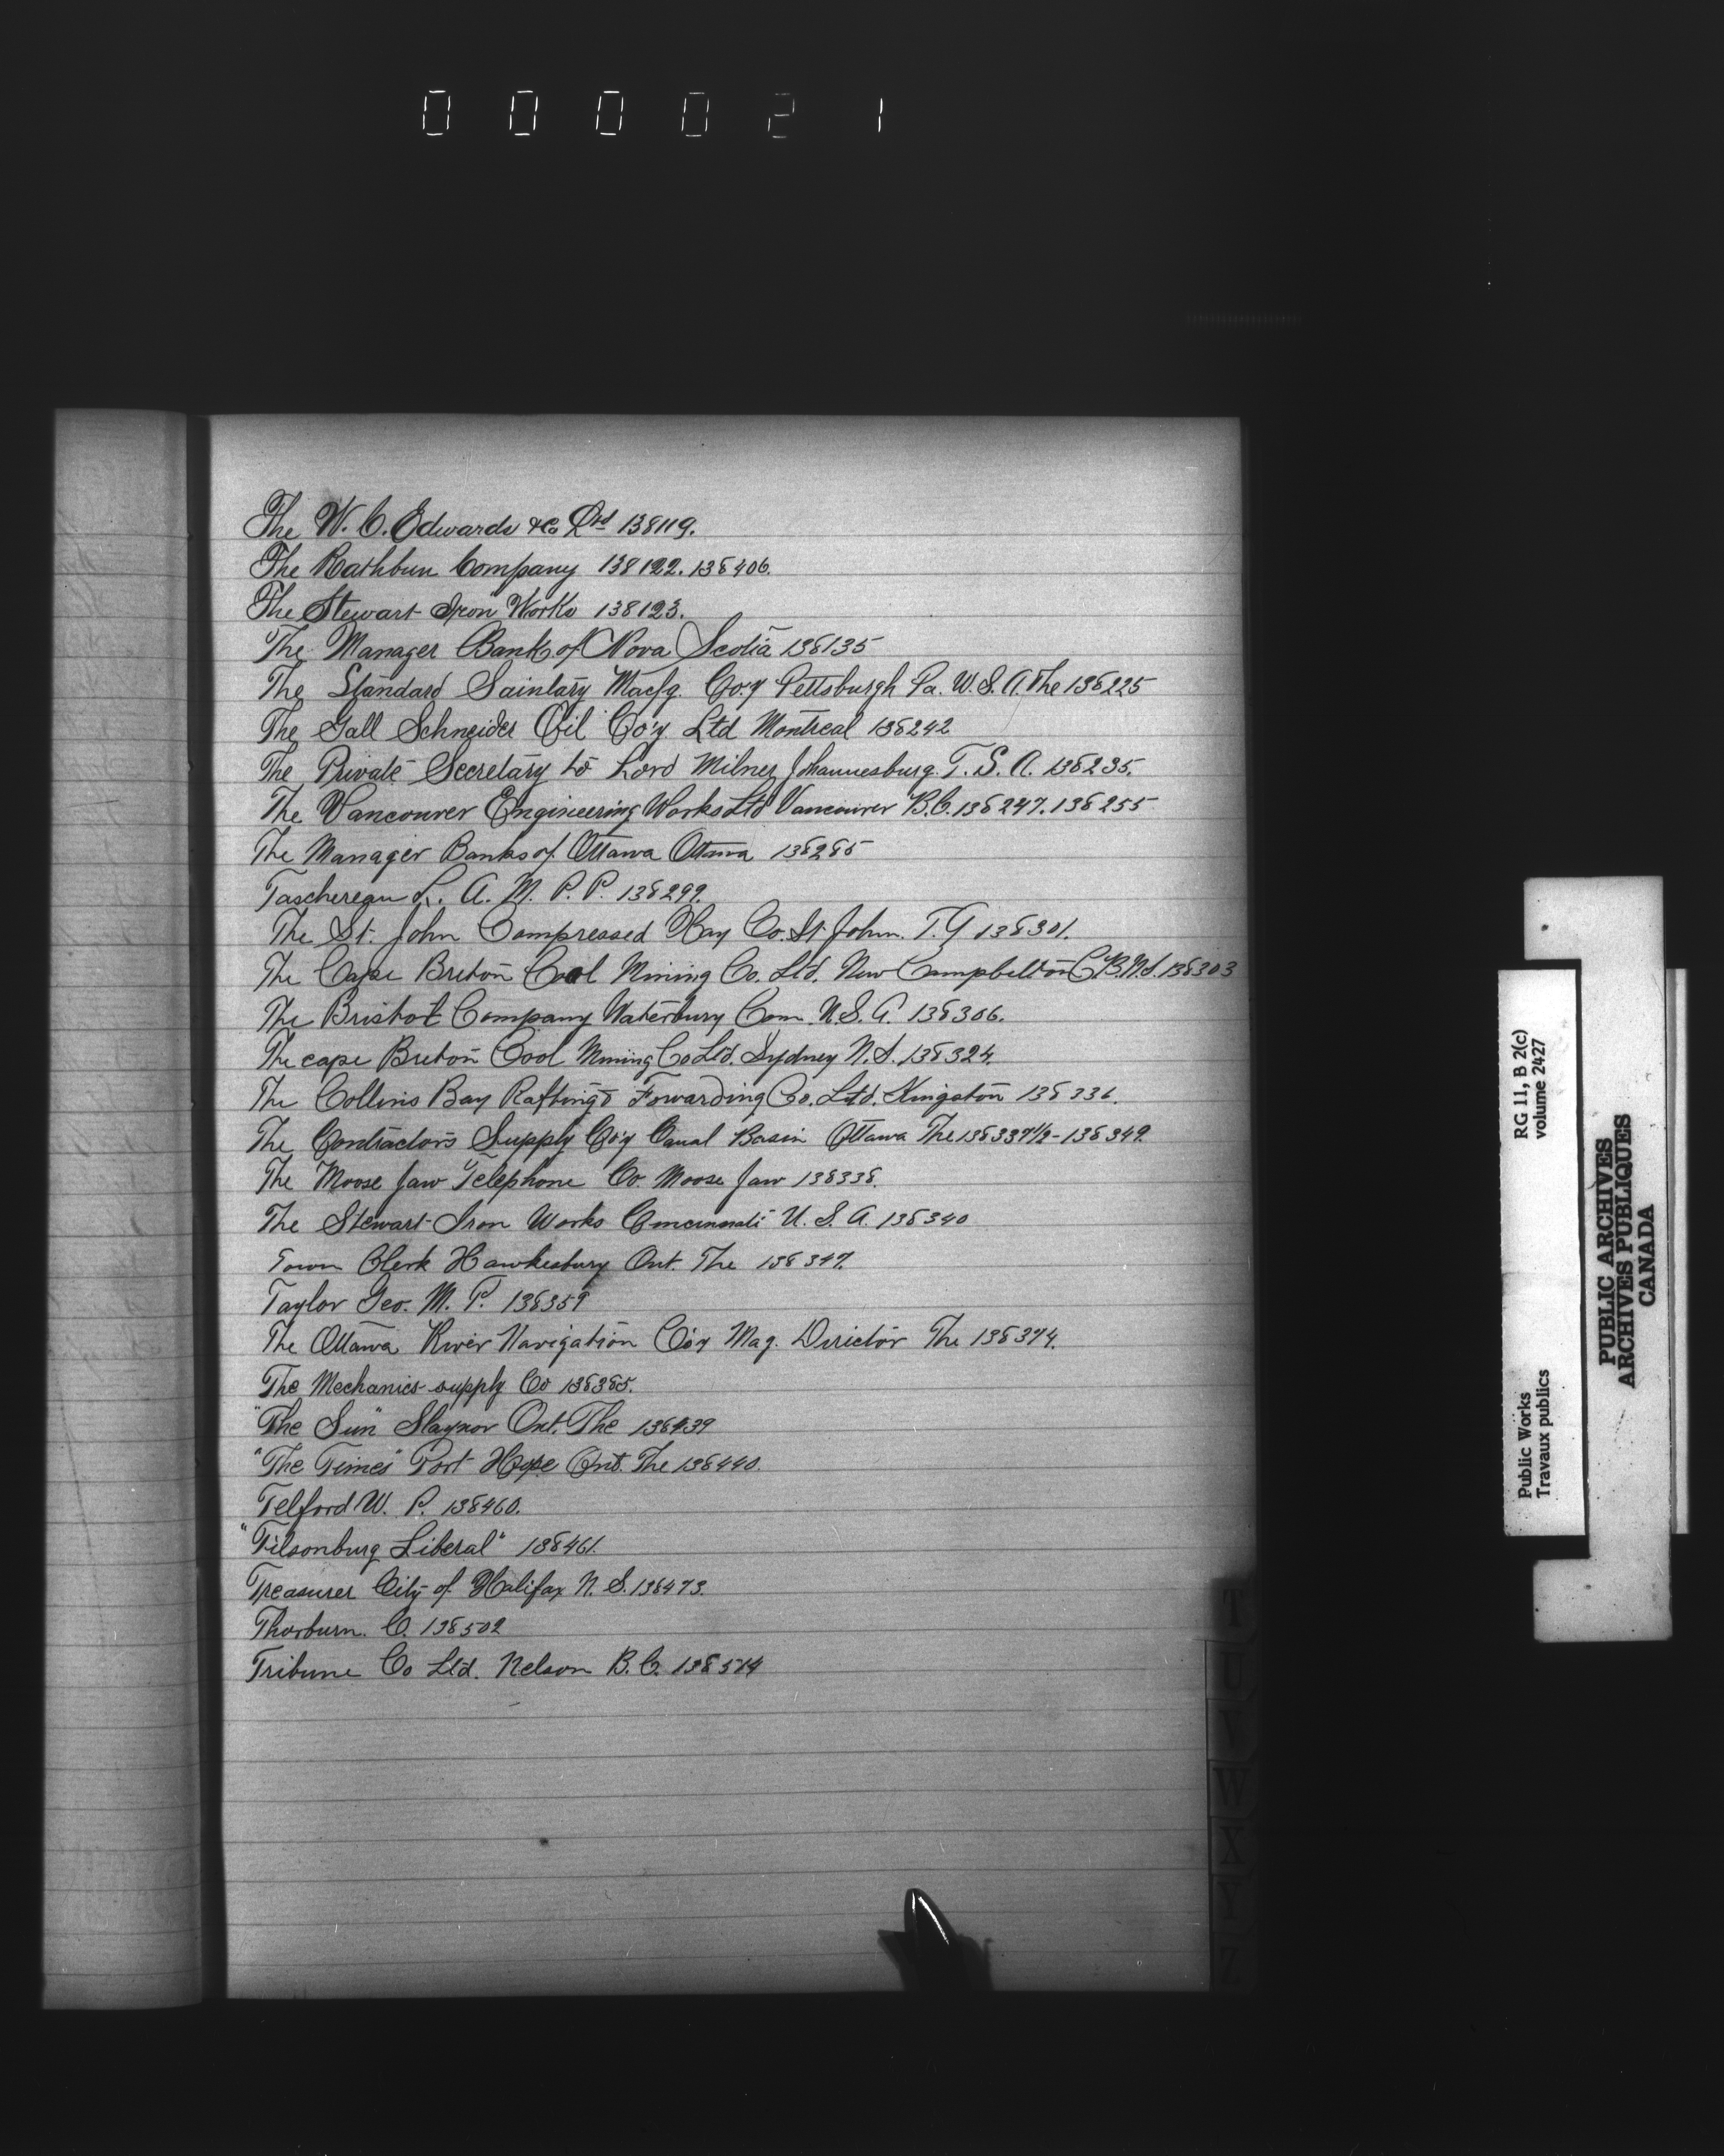 000021
The W. C. Edwards & Co Ltd 138119.
The Rathbun Company 138122. 138406.
The Stewart Iron Works 138123.
The Manager Bank of Nova Scotia 138135
The Standard Saintary Macfg. Co'y Pettsburgh Pa. U. S. A. The 138225
The Gall Schneider Oil Co'y Ltd Montreal 138242
The Private Secretary to Lord Milner Johannesburg. T. S. A. 138235.
The Vancouver Engineering Works Ltd Vancouver B.C. 138247. 138255
The Manager Banks of Ottawa Ottawa 138285
Taschereau L. A. M. P. P. 138299.
The St. John Compressed Hay Co. St. John. 138301.
The Cape Breton Coal Mining Co. Ltd. New Campbellton C.B. N.S. 138303
The Bristol Company Waterbury Conn. U.S. A. 138306.
The cape Breton Cool Mining Co Ltd. Sydney N.S. 138324.
The Collins Bay Rafting & Forwarding Co. Ltd. Kingston 138336.
The Contractors Supply Co'y Canal Basin Ottawa The 138337 1/2 - 138349.
The Moose Jaw Telephone Co. Moose Jaw 138338.
The Stewart Iron Works Cincinnati U. S. A. 138340
Town Clerk Hawkesbury Ont. The 138347.
Taylor Geo. M. P. 138359
The Ottawa River Navigation Co'y Mag. Director The 138374.
The Mechanics supply Co 138385.
"The Sun" Ont. The 138439
"The Times" Port Hope Ont. The 138440.
Telford W. P. 138460.
"Tilsonburg Liberal" 138461.
Treasurer City of Halifax N. S. 138473.
Thorburn. C. 138502
Tribune Co Ltd. Nelson B. C. 138514
T
U
V
W
X
Y
Z
RG 11, B 2(c)
volume 2427
Public Works
Travaux publics
PUBLIC ARCHIVES
ARCHIVES PUBLIQUES
CANADA